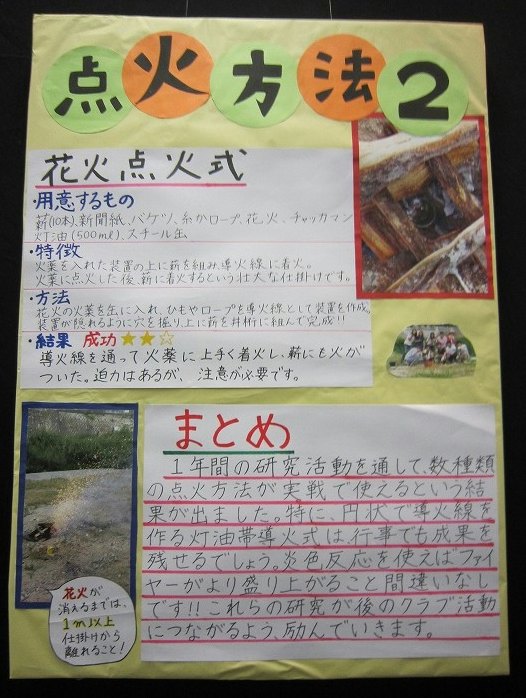 点火方法2
花火点火式
・用意するもの
薪(10本)、新聞紙、バケツ、糸かロープ、花火、チャッカマン
灯油(500ml)、スチール缶
・特徴
火薬を入れた装置の上に薪を組み、導火線に着火。
火薬に点火した後、薪に着火するという壮大な仕掛けです。
・方法
花火の火薬を缶に入れ、ひもやロープを導火線として装置を作成。
装置が隠れるように穴を掘り、上に薪を井桁に組んで完成!!
・結果 成功★★☆
導火線を通って火薬に上手く着火し、薪にも火が
ついた。迫力はあるが、注意が必要です。
まとめ
1年間の研究活動を通して、数種類
の点火方法が実戦で使えるという結
果が出ました。特に、円状で導火線を
作る灯油帯導火式は、行事でも成果を
残せるでしょう。炎色反応を使えばファイ
ヤーがより盛り上がること間違いなし
です!!これらの研究が後のクラブ活動
につながるよう、励んでいきます。
花火が
消えるまでは、
1m以上
仕掛けから
離れること!